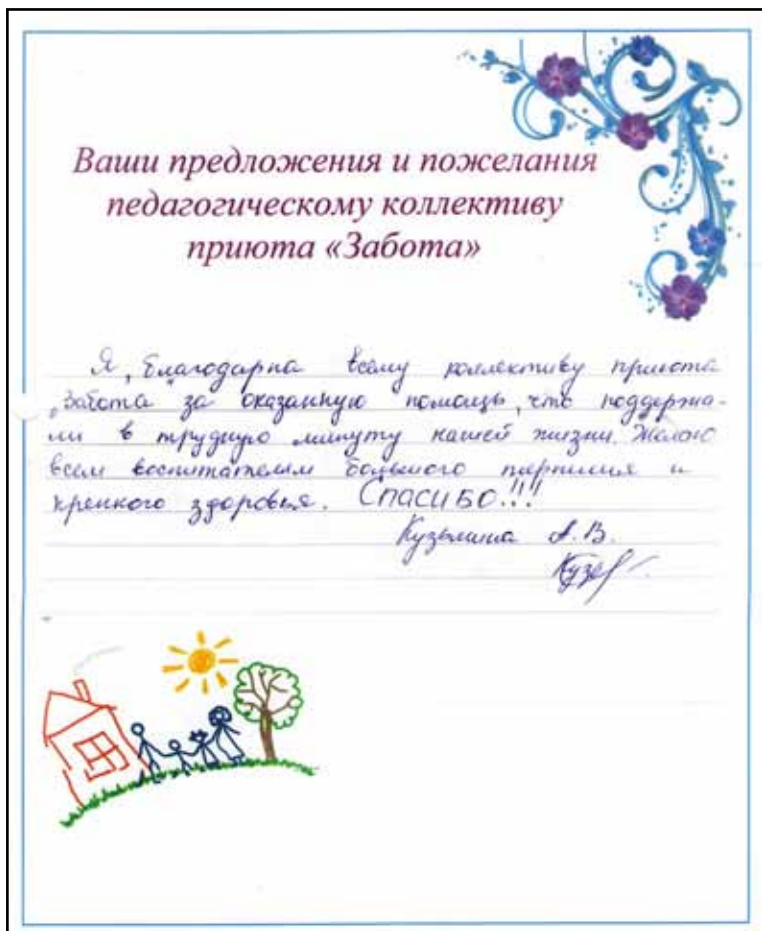 Ваши предложения и пожелания
педагогическому коллективу
приюта «Забота»
Я, благодарна всему коллективу приюта
„Забота“ за оказанную помощь, что поддержа-
ли в трудную минуту нашей жизни. Желаю
всем воспитателям большого терпения и
крепкого здоровья. Спасибо!!!
Кузьмина А.В.